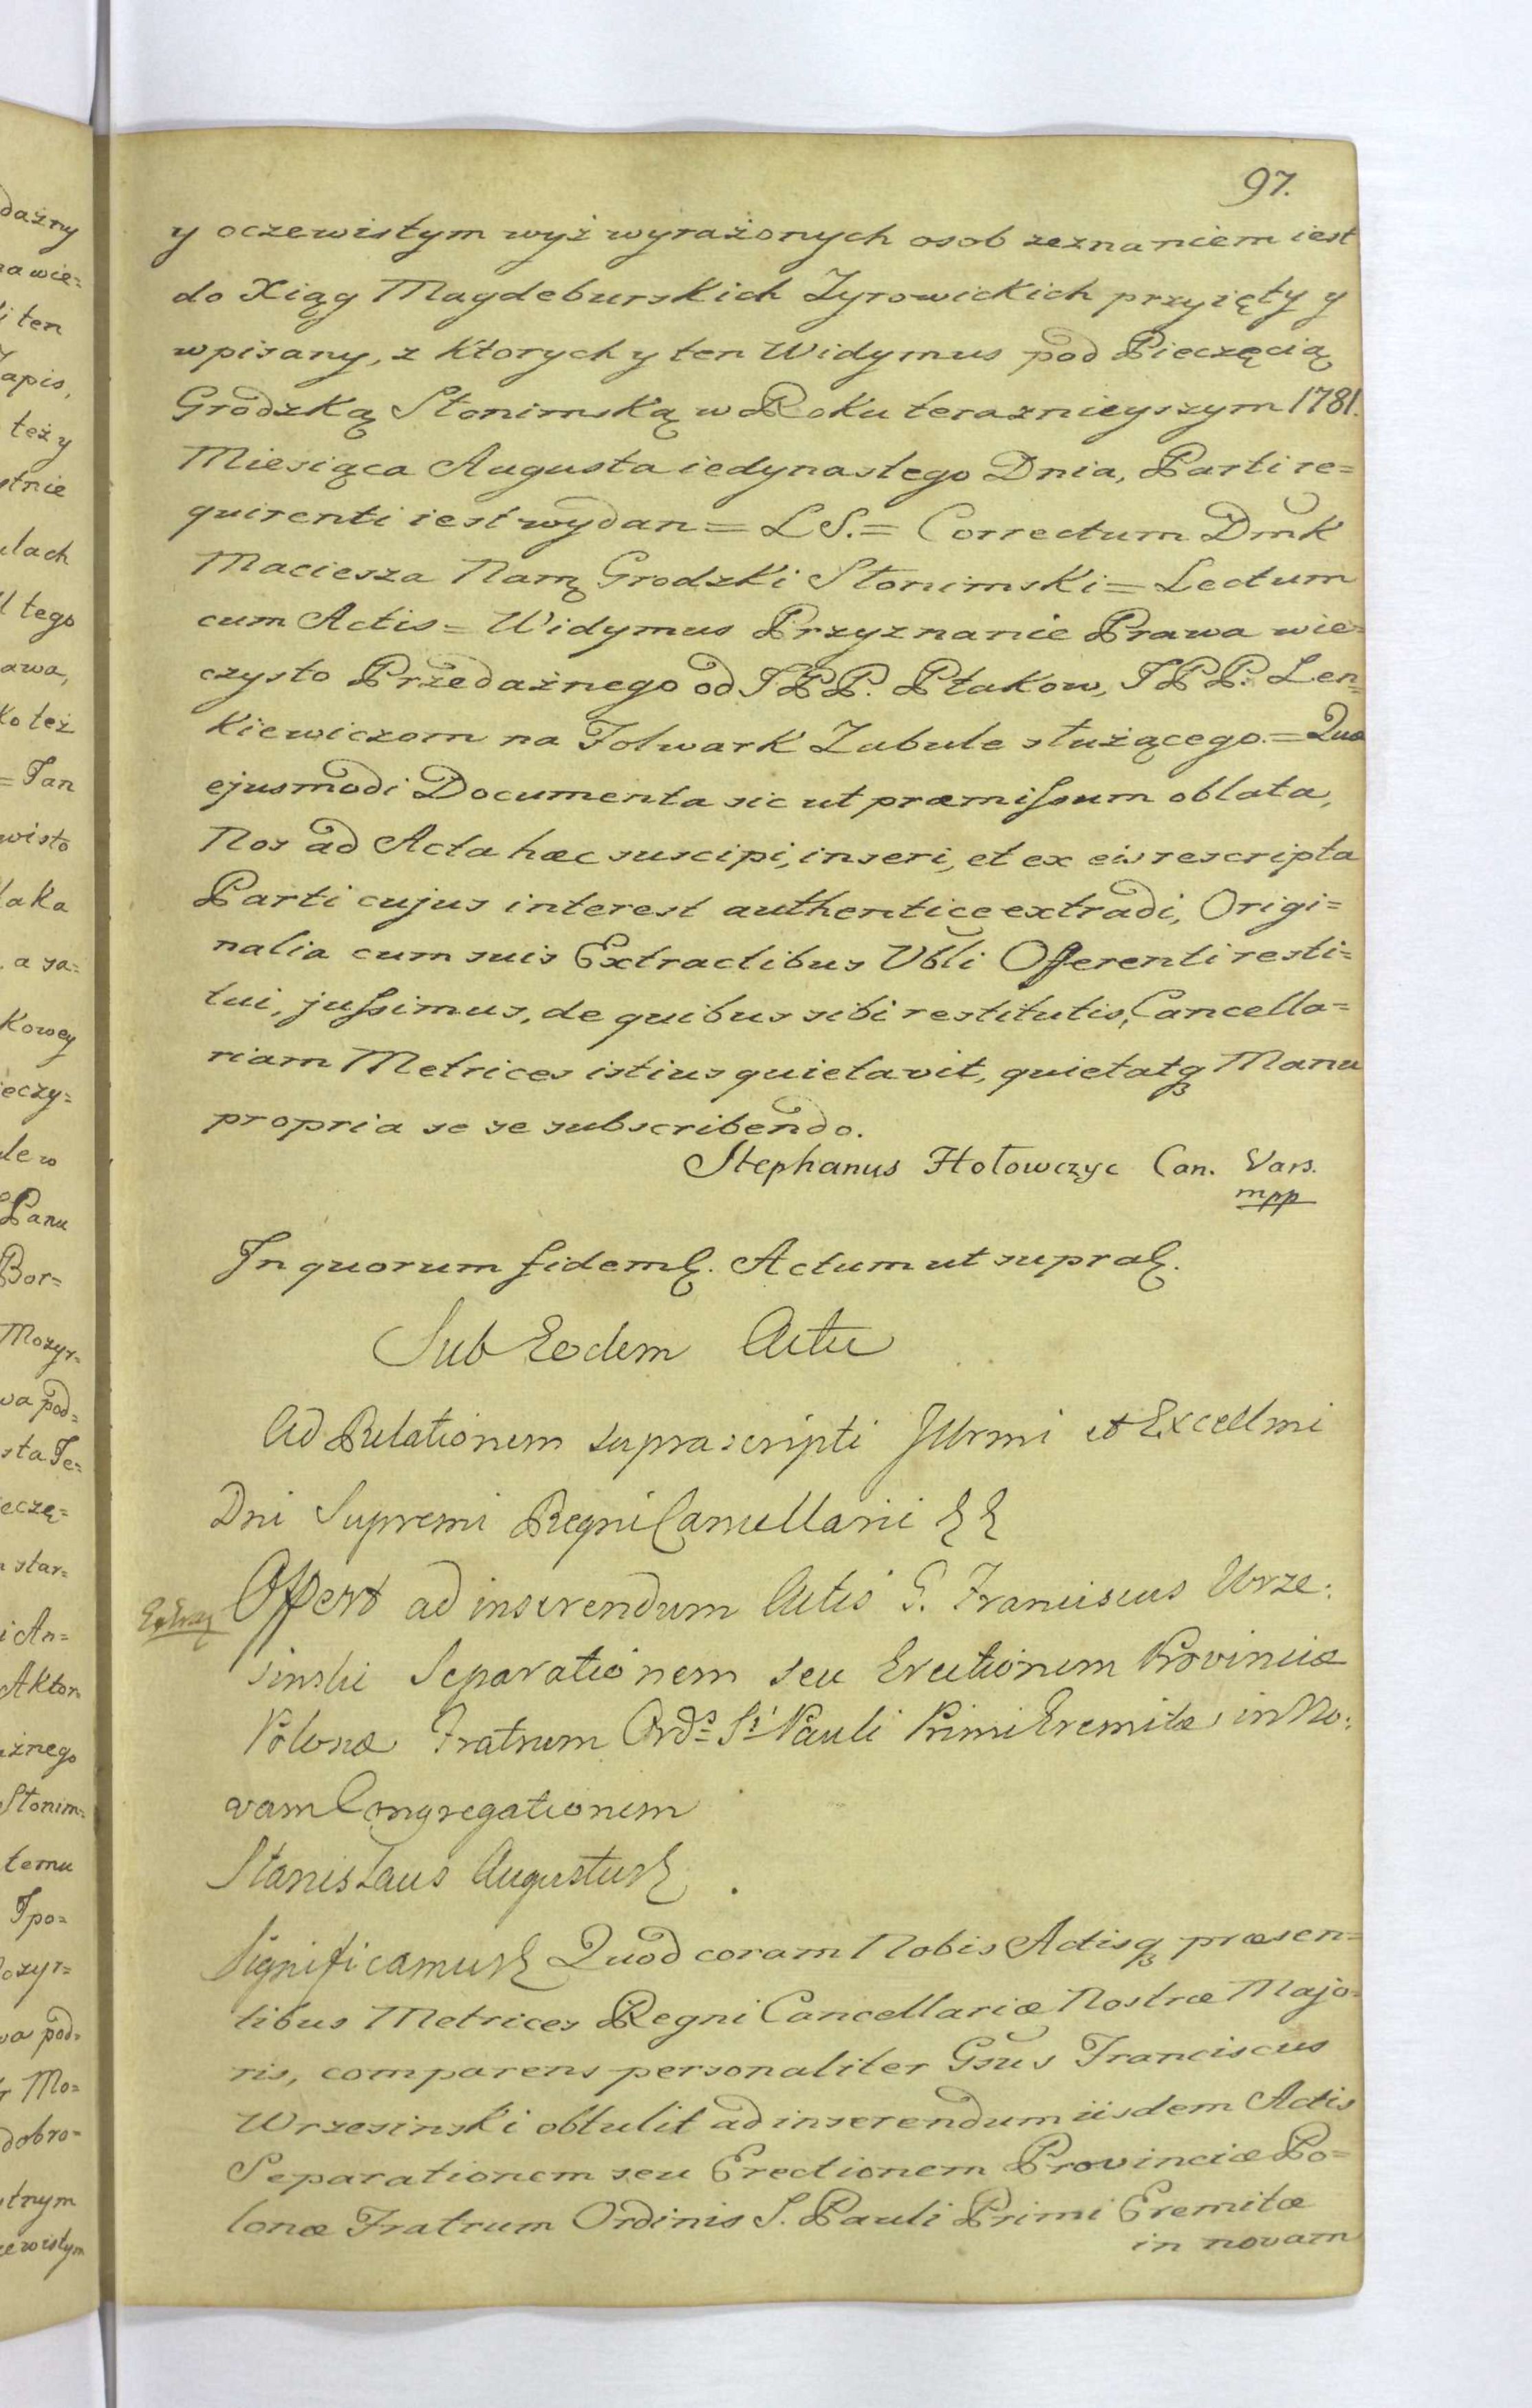 97.
y oczewistym wyż wyrażonych osob zeznaniem iest
do Xiąg Magdeburskich Zyrowickich przyięty y
wpisany, z Ktorych y ten Widymus pod Pieczęcią
Grodzką Słonimską w Roku teraznieyszym 1781.
Miesiąca Augusta iedynastego Dnia, Parti re=
quirenti iest wydan = LS. = Correctum Dmk
Maciesza Namą Grodzki Słonimski = Lectum
cum Actis = Widymus Przyznanie Prawa wie=
czysto Przedażnego od JPP. Ptakow, JPP. Len=
Kiewiczom na Folwark Zabule służącego. = Quæ
ejusmodi Documenta sic ut præmissum oblata,
Nos ad Acta hæc suscipi, inseri, et ex eis rescripta
Parti cujus interest authentice extradi, Origi=
nalia cum suis Extractibus Vbli Offerenti resti=
tui, jussimus, de quibus sibi restitutis, Cancella=
riam Metrices istius quietavit, quietatq Manu
propria se se subscribendo.
Stephanus Hołowczyc Can. Vars.
mpp
In quorum fidem &. Actum ut supra &.
Sub Eodem Actu
Ad Relationem suprascripti Illrmi et Excellmi
Dni Supremi Regni Cancellarii & &
Offert ad inserendum Actis G. Franciscus Wrze:
sinski Separationem seu Erectionem Provinciæ
Polonæ Fratrum Ordis Sti Pauli Primi Eremitæ in No:
vam Congregationem
Stanislaus Augustus &
Significamus & Quod coram Nobis Actisq præsen=
tibus Metrices Regni Cancellariæ Nostræ Majo=
ris, comparens personaliter Gsus Franciscus
Wrzesinski obtulit ad inserendum iisdem Actis
Separationem seu Erectionem Provinciæ Po=
lonæ Fratrum Ordinis S. Pauli Primi Eremitæ
in novam